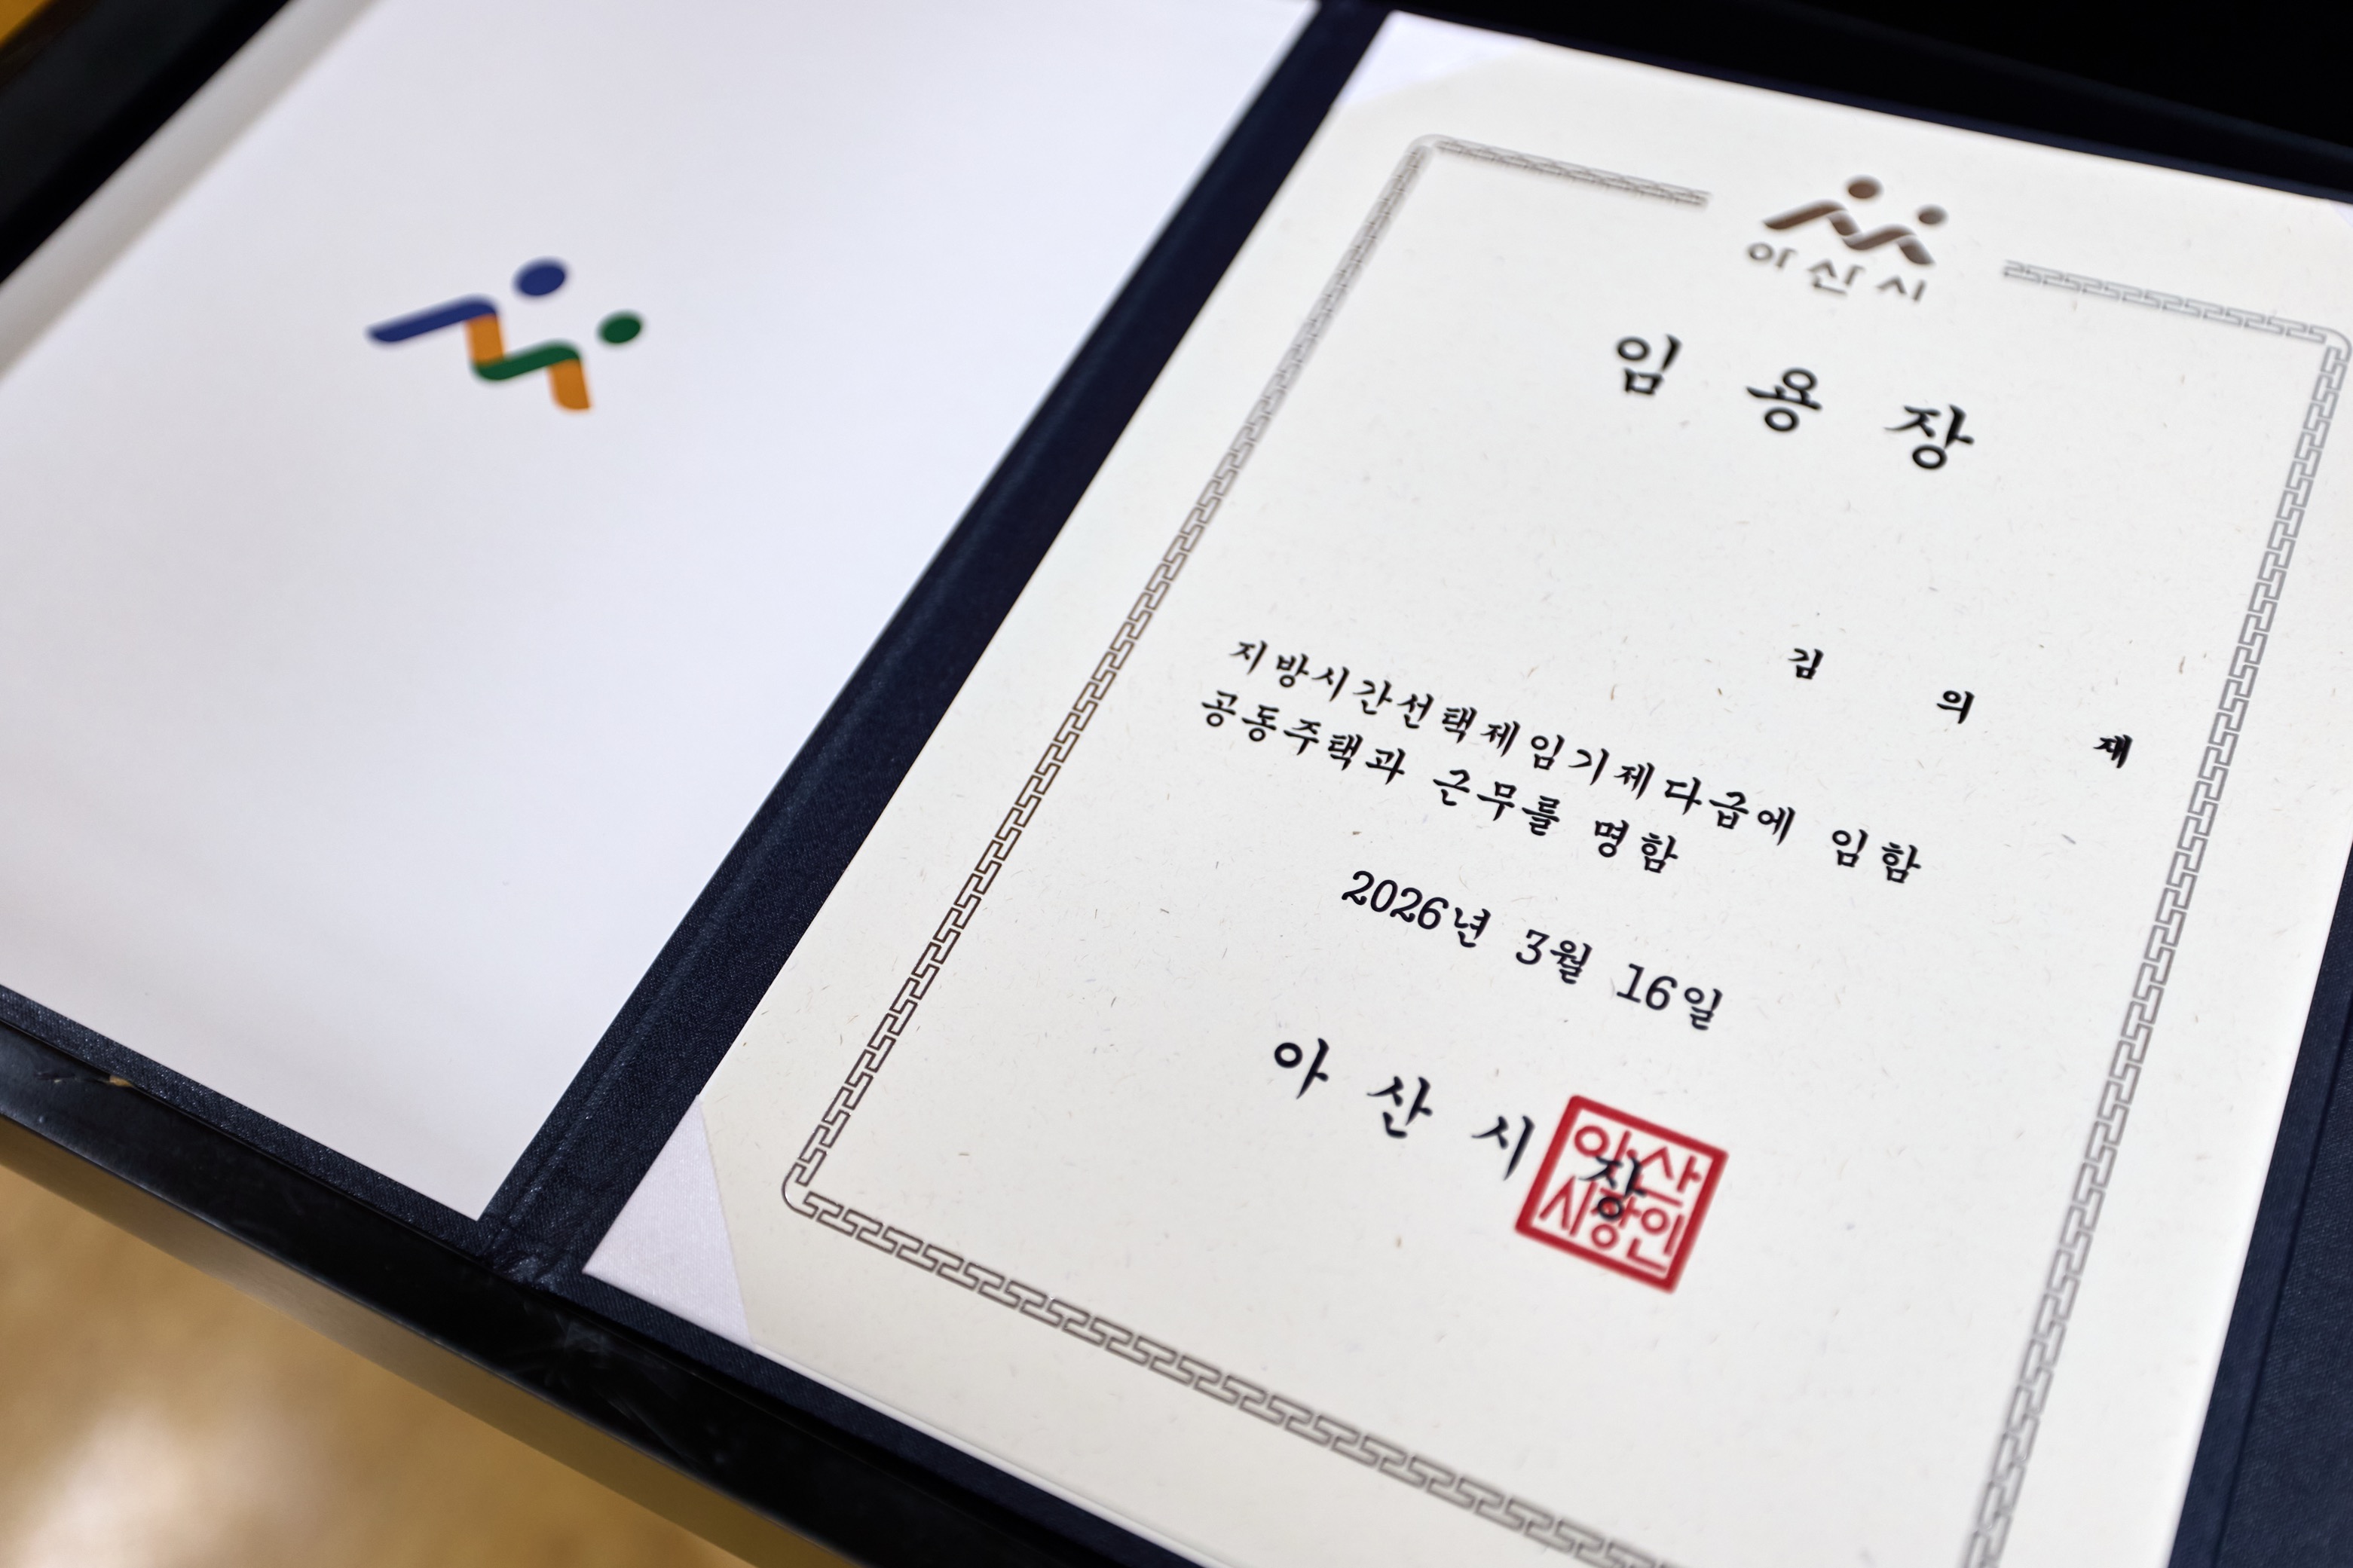 아산시
임 용 장
김 의 재
지방시간선택제임기제다급에 임함
공동주택과 근무를 명함
2026년 3월 16일
아 산 시 장
아산
시장인